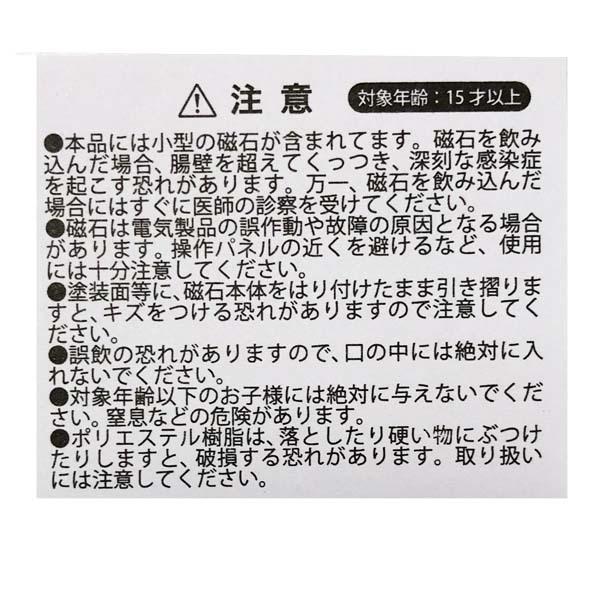 ⚠ 注意 対象年齢：15才以上
●本品には小型の磁石が含まれてます。磁石を飲み
込んだ場合、腸壁を超えてくっつき、深刻な感染症
を起こす恐れがあります。万一、磁石を飲み込んだ
場合にはすぐに医師の診察を受けてください。
●磁石は電気製品の誤作動や故障の原因となる場合
があります。操作パネルの近くを避けるなど、使用
には十分注意してください。
●塗装面等に、磁石本体をはり付けたまま引き摺りま
すと、キズをつける恐れがありますので注意してく
ださい。
●誤飲の恐れがありますので、口の中には絶対に入
れないでください。
●対象年齢以下のお子様には絶対に与えないでくだ
さい。窒息などの危険があります。
●ポリエステル樹脂は、落としたり硬い物にぶつけ
たりしますと、破損する恐れがあります。取り扱い
には注意してください。